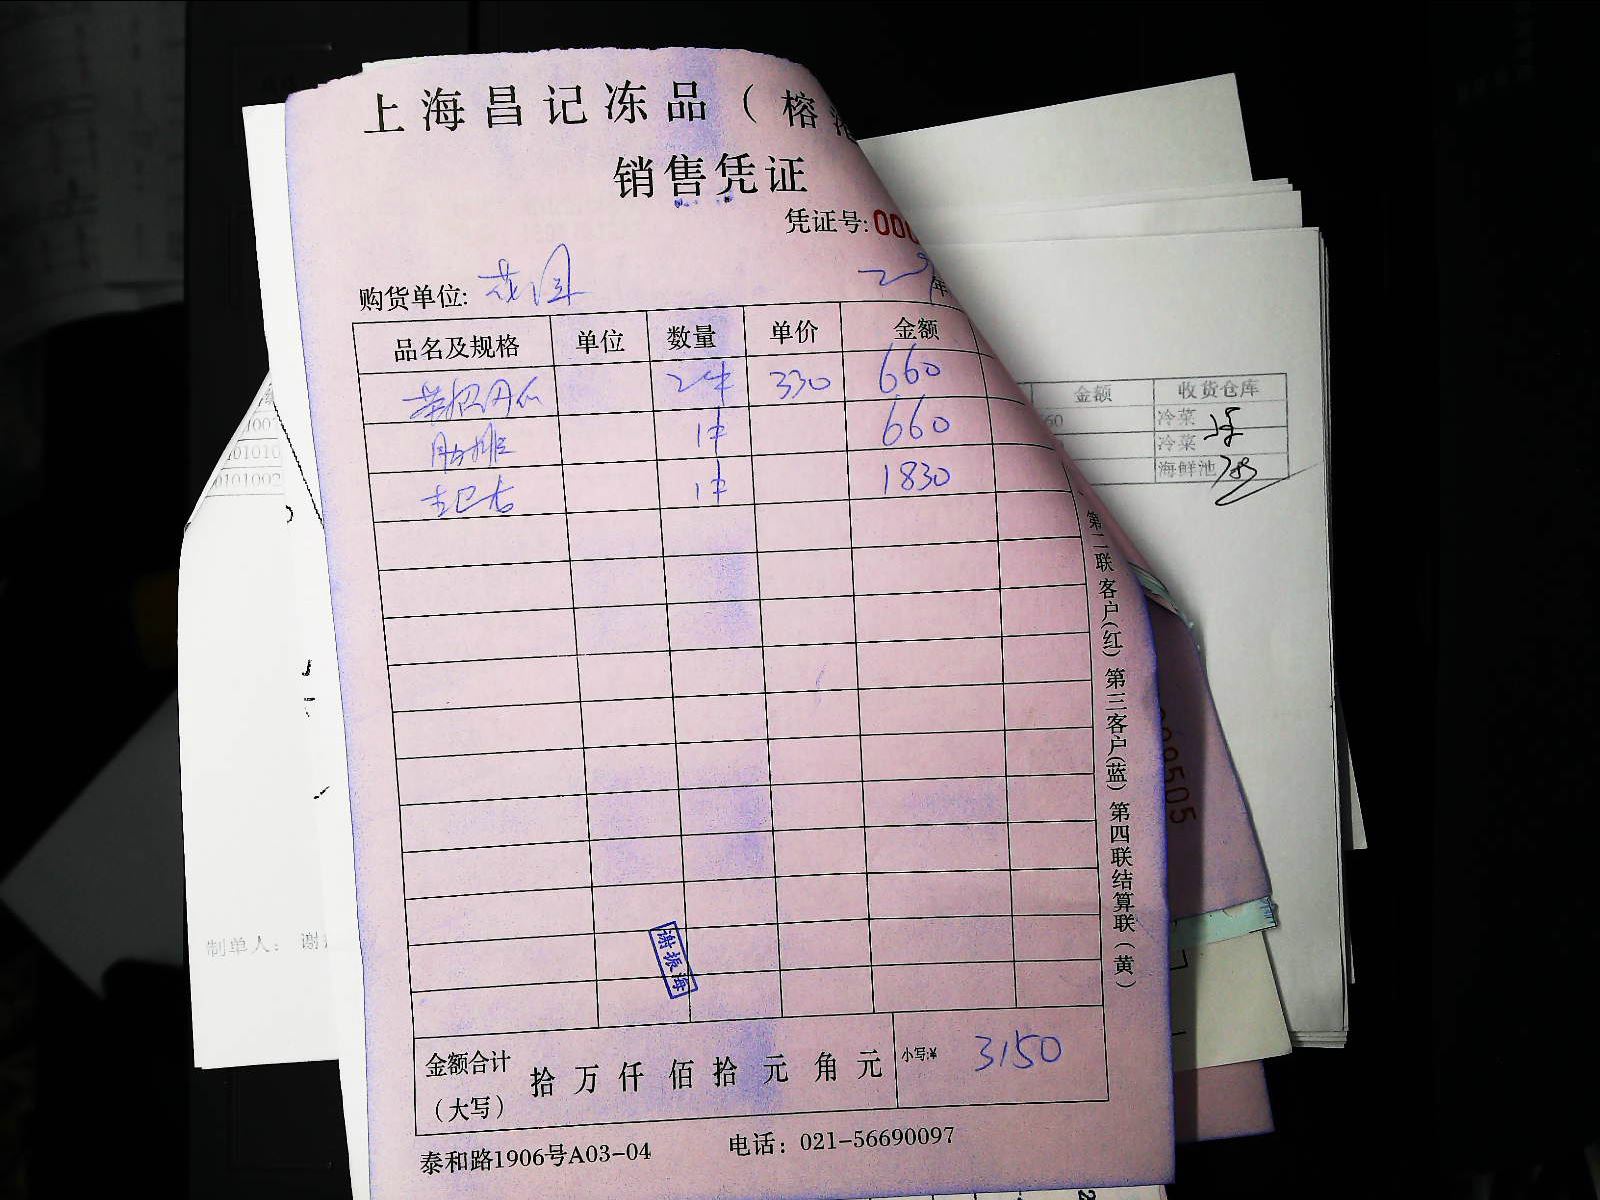 上海昌记冻品（榕
销售凭证
凭证号:000
购货单位: 花园 年
品名及规格 单位 数量 单价 金额
2件 330 660
肋排 1件 660
1件 1830
金额合计（大写） 拾万仟佰拾元角元 小写:¥ 3150
泰和路1906号A03-04 电话：021-56690097
第二联客户(红) 第三客户(蓝) 第四联结算联(黄)
谢振海
金额 收货仓库
60 冷菜
冷菜
海鲜池
1001
0101010
0101002
制单人： 谢
009505